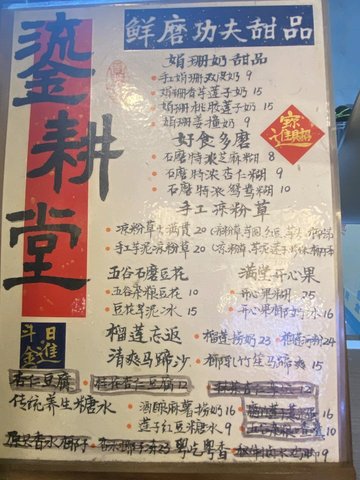 鎏耕堂
斗日
金進
鮮磨功夫甜品
娟珊奶甜品
手工娟珊双皮奶 9
娟珊香芋莲子奶 15
娟珊桃胶莲子奶 15
娟珊姜撞奶 9
好食多磨
石磨特浓芝麻糊 8
石磨特浓杏仁糊 9
石磨特浓鸳鸯糊 10
招財進寶
手工凉粉草
凉粉草大满貫 20
手工芋泥凉粉草 20
五谷石磨豆花
五谷杂粮豆花 10
豆花芋泥冰 15
满堂开心果
开心果糊 25
榴莲忘返
榴莲捞奶 23
清爽马蹄沙
椰乳竹笙马蹄爽 15
杏仁豆腐
传统养生糖水
酒酿麻薯捞奶 16
莲子红豆糖水 9
粤吃粤香